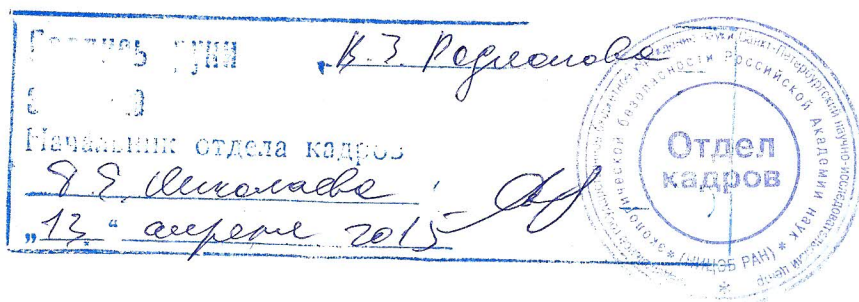 Подпись руки В.З. Родионова
Начальник отдела кадров
Т.Е. Николаева
„13“ апреля 2015
Отдел
кадров
Санкт-Петербургский научно-исследовательский центр
экологической безопасности Российской Академии наук
(НИЦЭБ РАН)